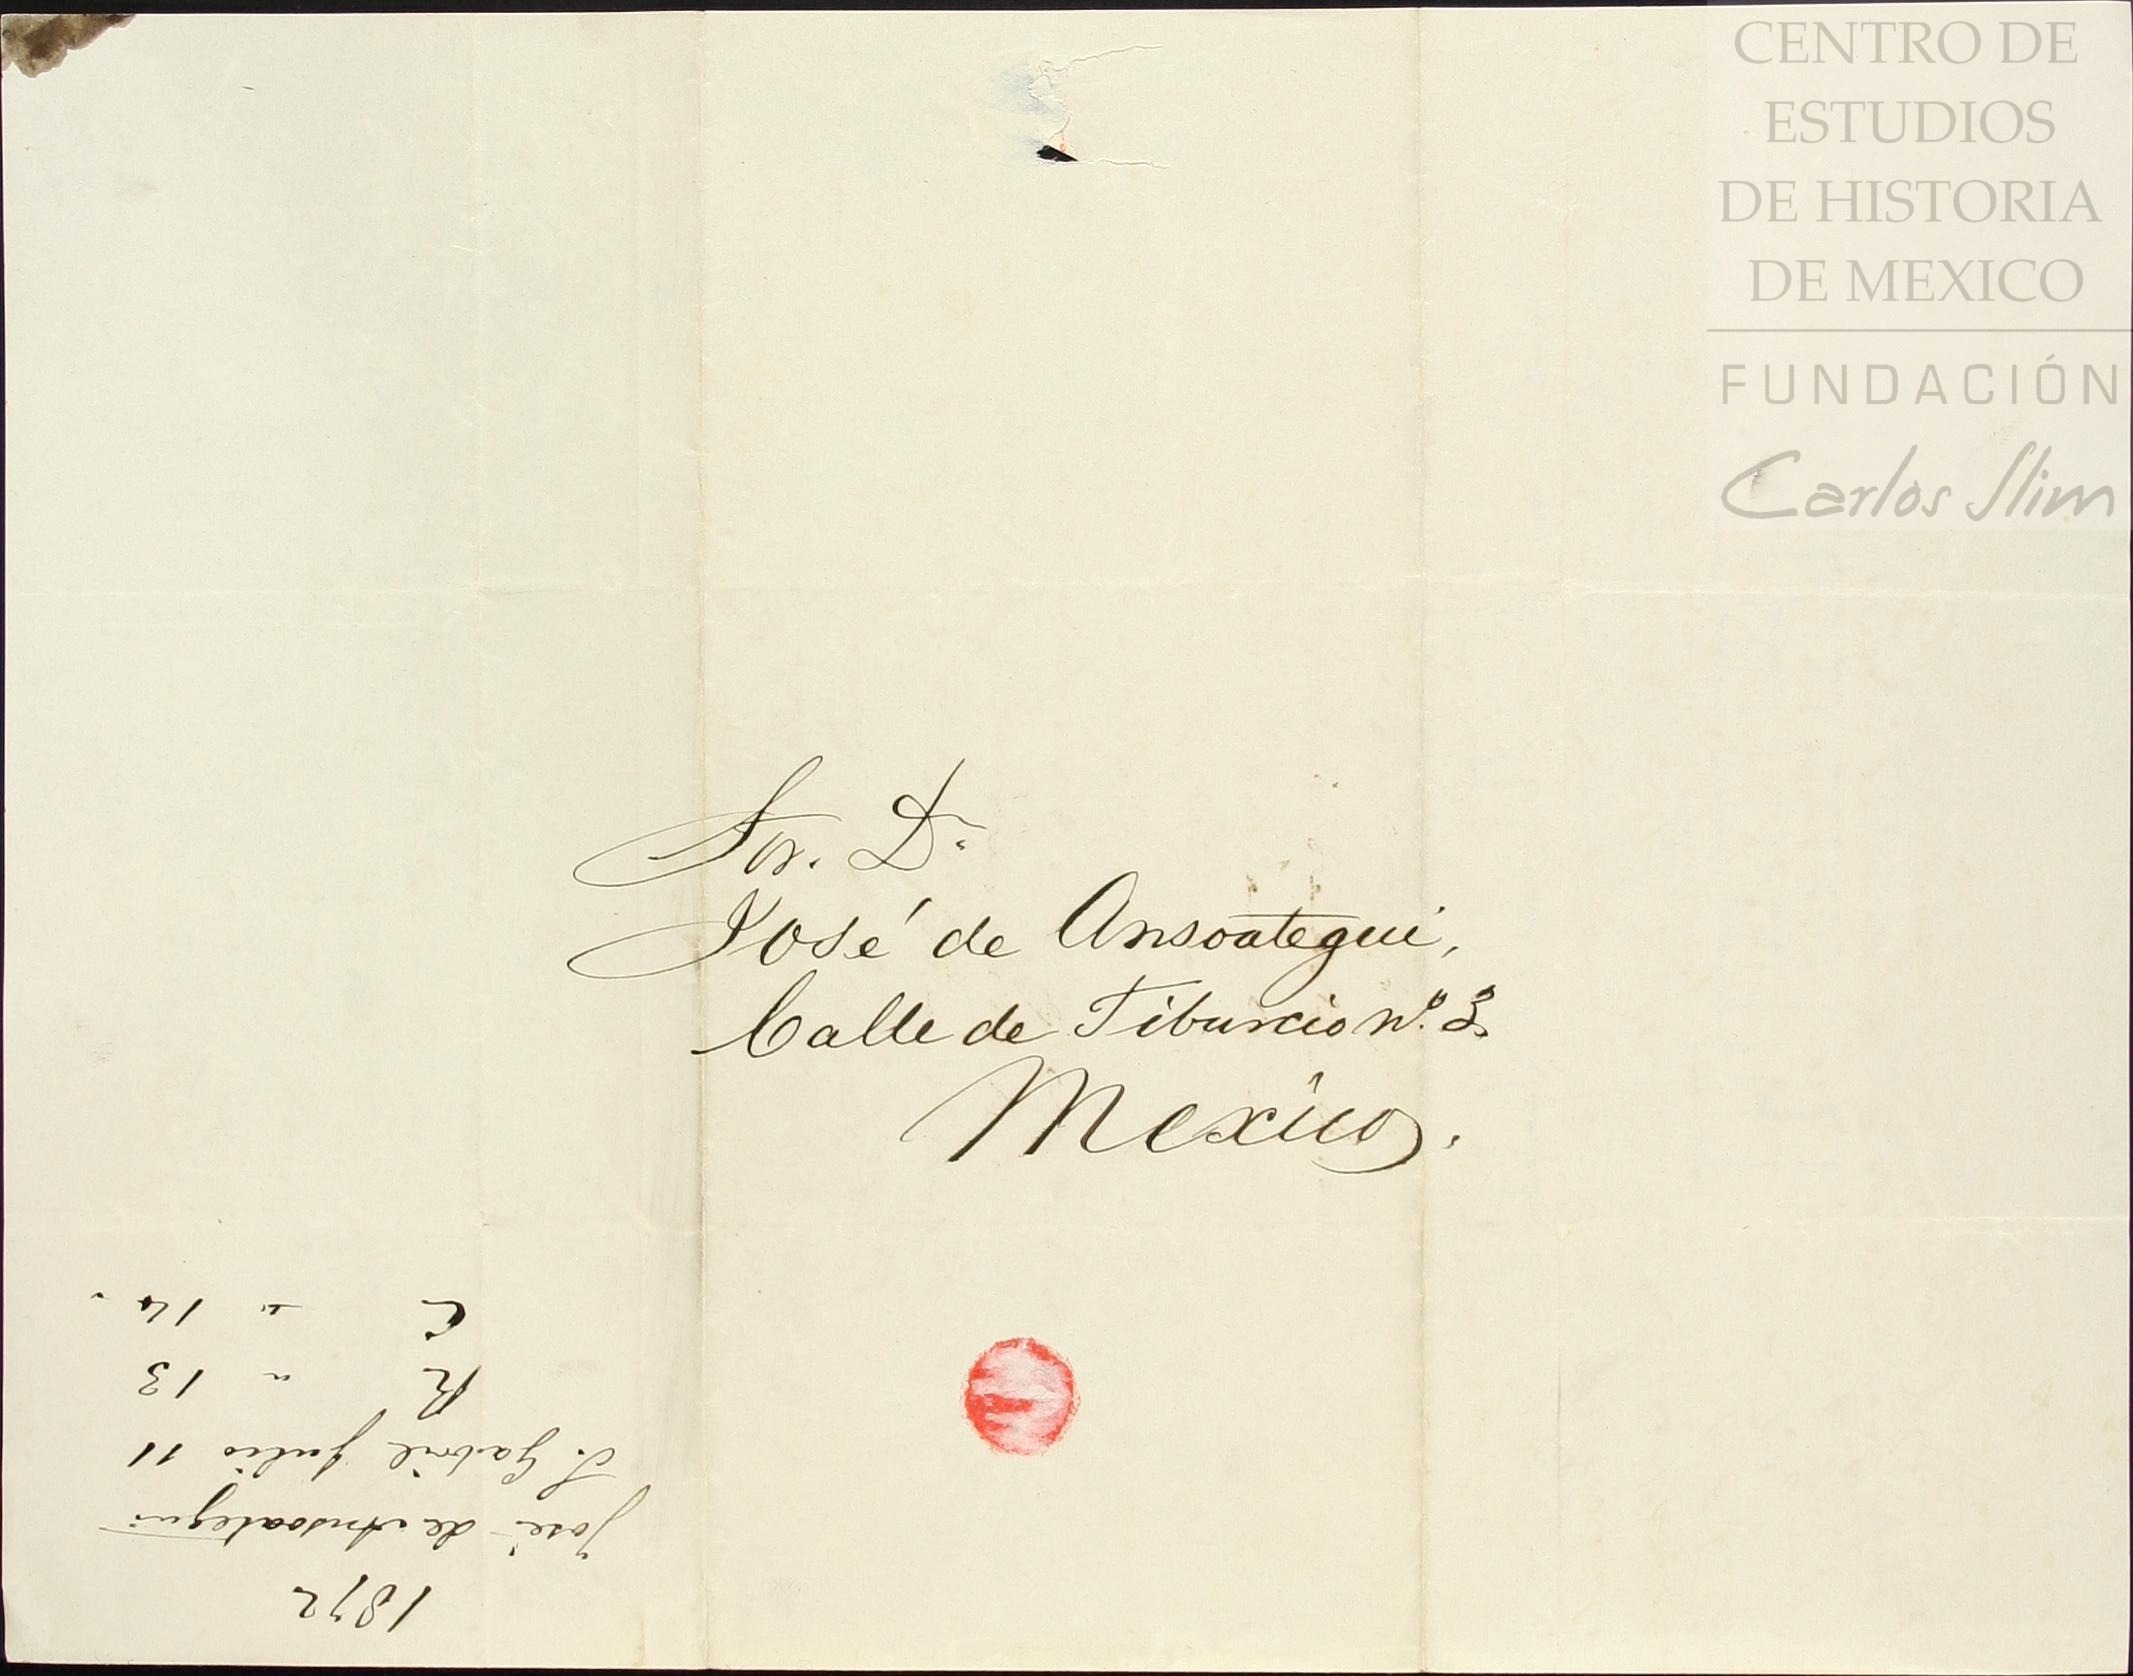 CENTRO DE
ESTUDIOS
DE HISTORIA
DE MEXICO
FUNDACIÓN
Carlos Slim
Sor. Dn.
José de Ansoategui,
Calle de Tiburcio nº. 3.
Mexico.
1872
José de Ansoategui
S. Gabriel Julio 11
R " 13
C " 14.